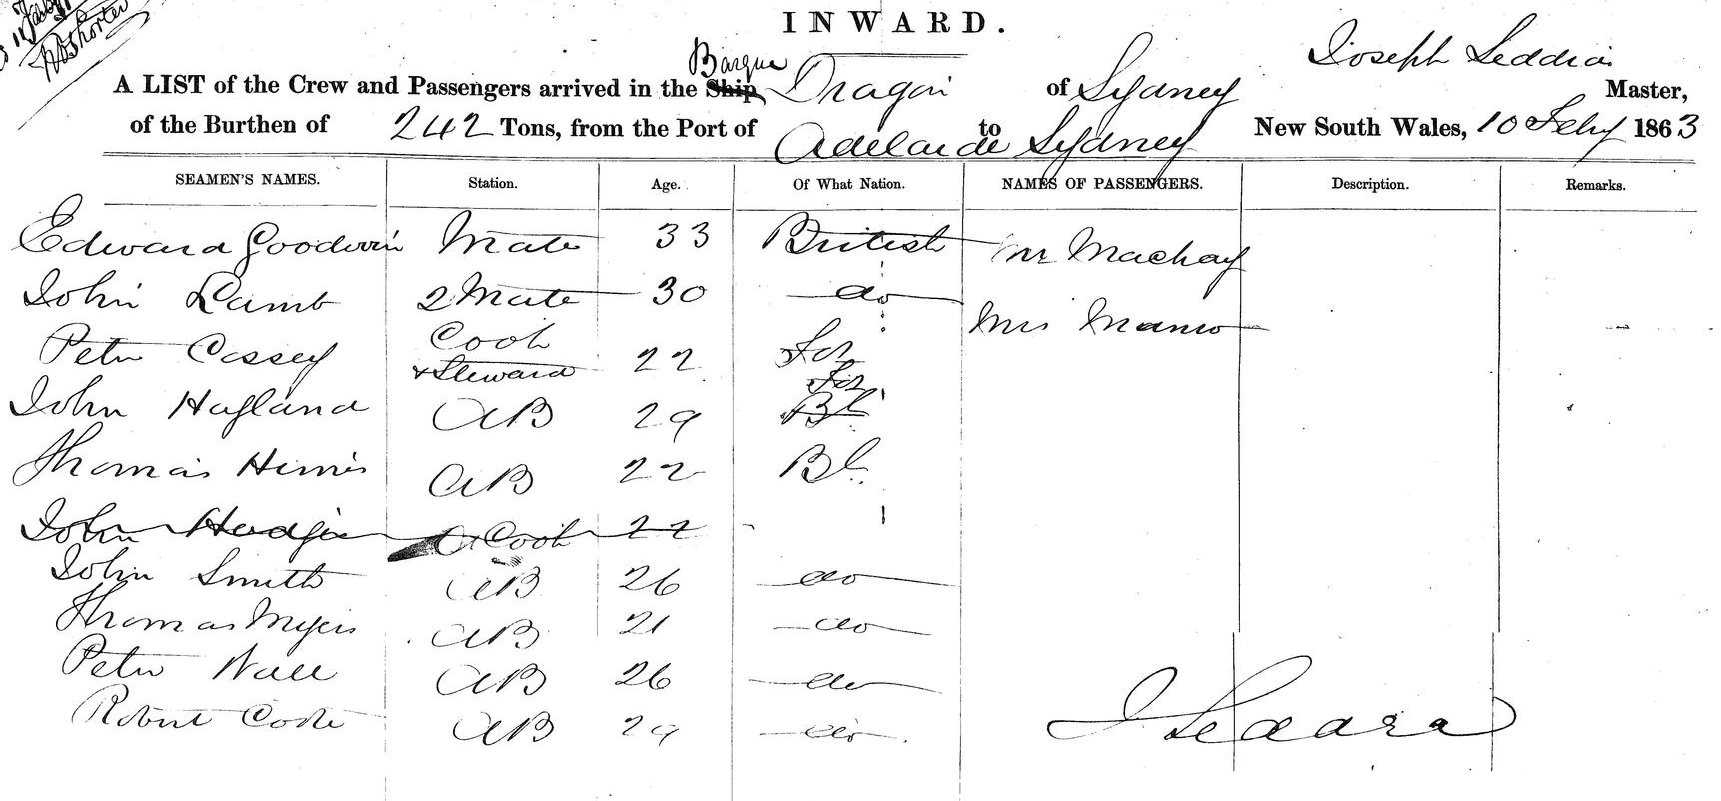 Shorter
INWARD.
Barque
Joseph Seddra
A LIST of the Crew and Passengers arrived in the Ship Dragon of Sydney Master,
of the Burthen of 242 Tons, from the Port of Adelaide to Sydney New South Wales, 10 Feby 1863
SEAMEN'S NAMES. Station. Age. Of What Nation. NAMES OF PASSENGERS. Description. Remarks.
Edward Goodwin Mate 33 British Mr Mackay
John Lamb 2 Mate 30 do
Mrs Manro
Peter Cassey Cook & Steward 22 For
John Hagland AB 29 For Bh
Thomas Himis AB 22 Bh
John Hodge Cook 22
John Smith AB 26 do
Thomas Myers AB 21 do
Peter Wall AB 26 do
Robert Coote AB 29 do
J Seddra